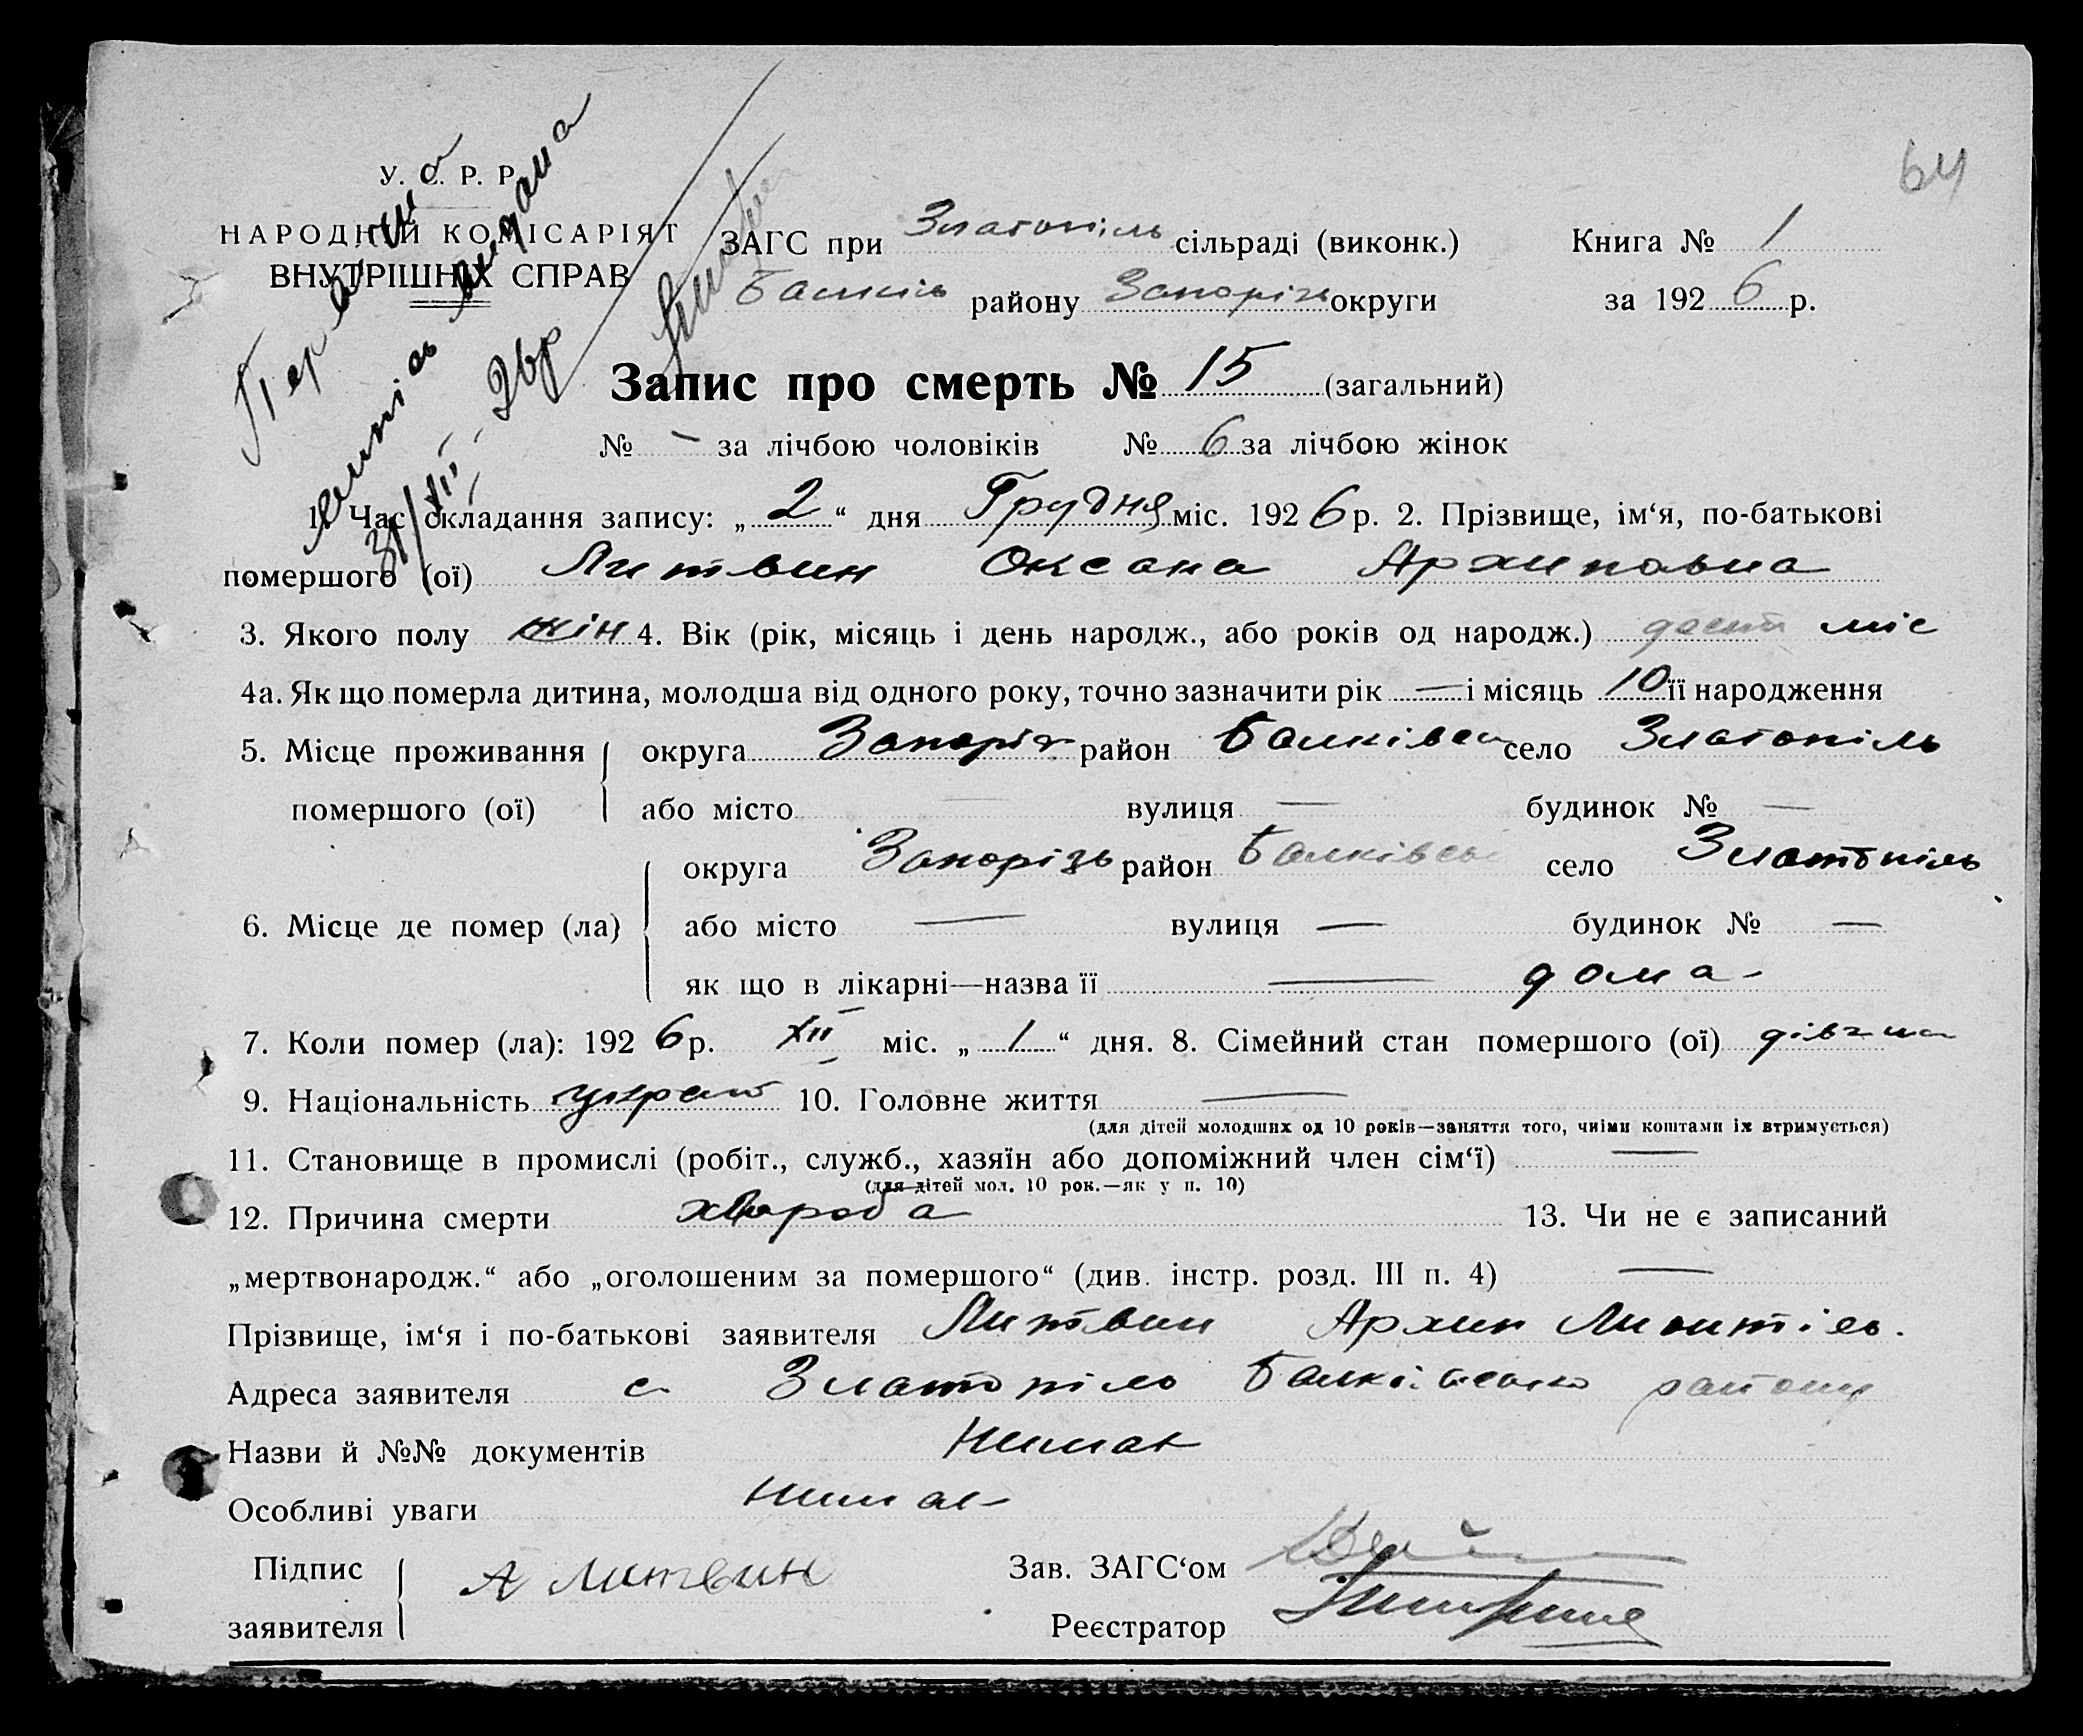 64
У. С. Р. Р.
НАРОДНІЙ КОМІСАРІЯТ
ВНУТРІШНІХ СПРАВ
Перва
копія видана
31/XII - 26р
ЗАГС при Златопіль сільраді (виконк.) Книга № 1
району Запорізь округи за 192 6 р.
Запис про смерть № 15 (загальний)
№ - за лічбою чоловіків № 6 за лічбою жінок
1. Час складання запису: „ 2 “ дня Грудня міс. 192 6 р. 2. Прізвище, ім‘я, по-батькові
помершого (ої) Литвин Оксана Архиповна
3. Якого полу жін 4. Вік (рік, місяць і день народж., або років од народж.) міс
4а. Як що померла дитина, молодша від одного року, точно зазначити рік — і місяць 10 її народження
5. Місце проживання округа Запоріз район Балківсь село Златопіль
помершого (ої) або місто — вулиця — будинок № —
округа Запорізь район Балківсь село Златопіль
6. Місце де помер (ла) або місто — вулиця — будинок № —
як що в лікарні—назва її — дома -
7. Коли помер (ла): 192 6 р. XII міс. „ 1 “ дня. 8. Сімейний стан помершого (ої) дівчина
9. Національність украї 10. Головне життя —
(для дітей молодших од 10 років—заняття того, чиїми коштами їх втримується)
11. Становище в промислі (робіт., служб., хазяїн або допоміжний член сім‘ї) —
(для дітей мол. 10 рок.—як у п. 10)
12. Причина смерти хвороба 13. Чи не є записаний
„мертвонародж.“ або „оголошеним за помершого“ (див. інстр. розд. III п. 4) —
Прізвище, ім‘я і по-батькові заявителя Литвин Архип
Адреса заявителя с. Златопіль Балківсько району
Назви й №№ документів Нимає
Особливі уваги нимає
Підпис А Литвин Зав. ЗАГС‘ом
заявителя Реєстратор